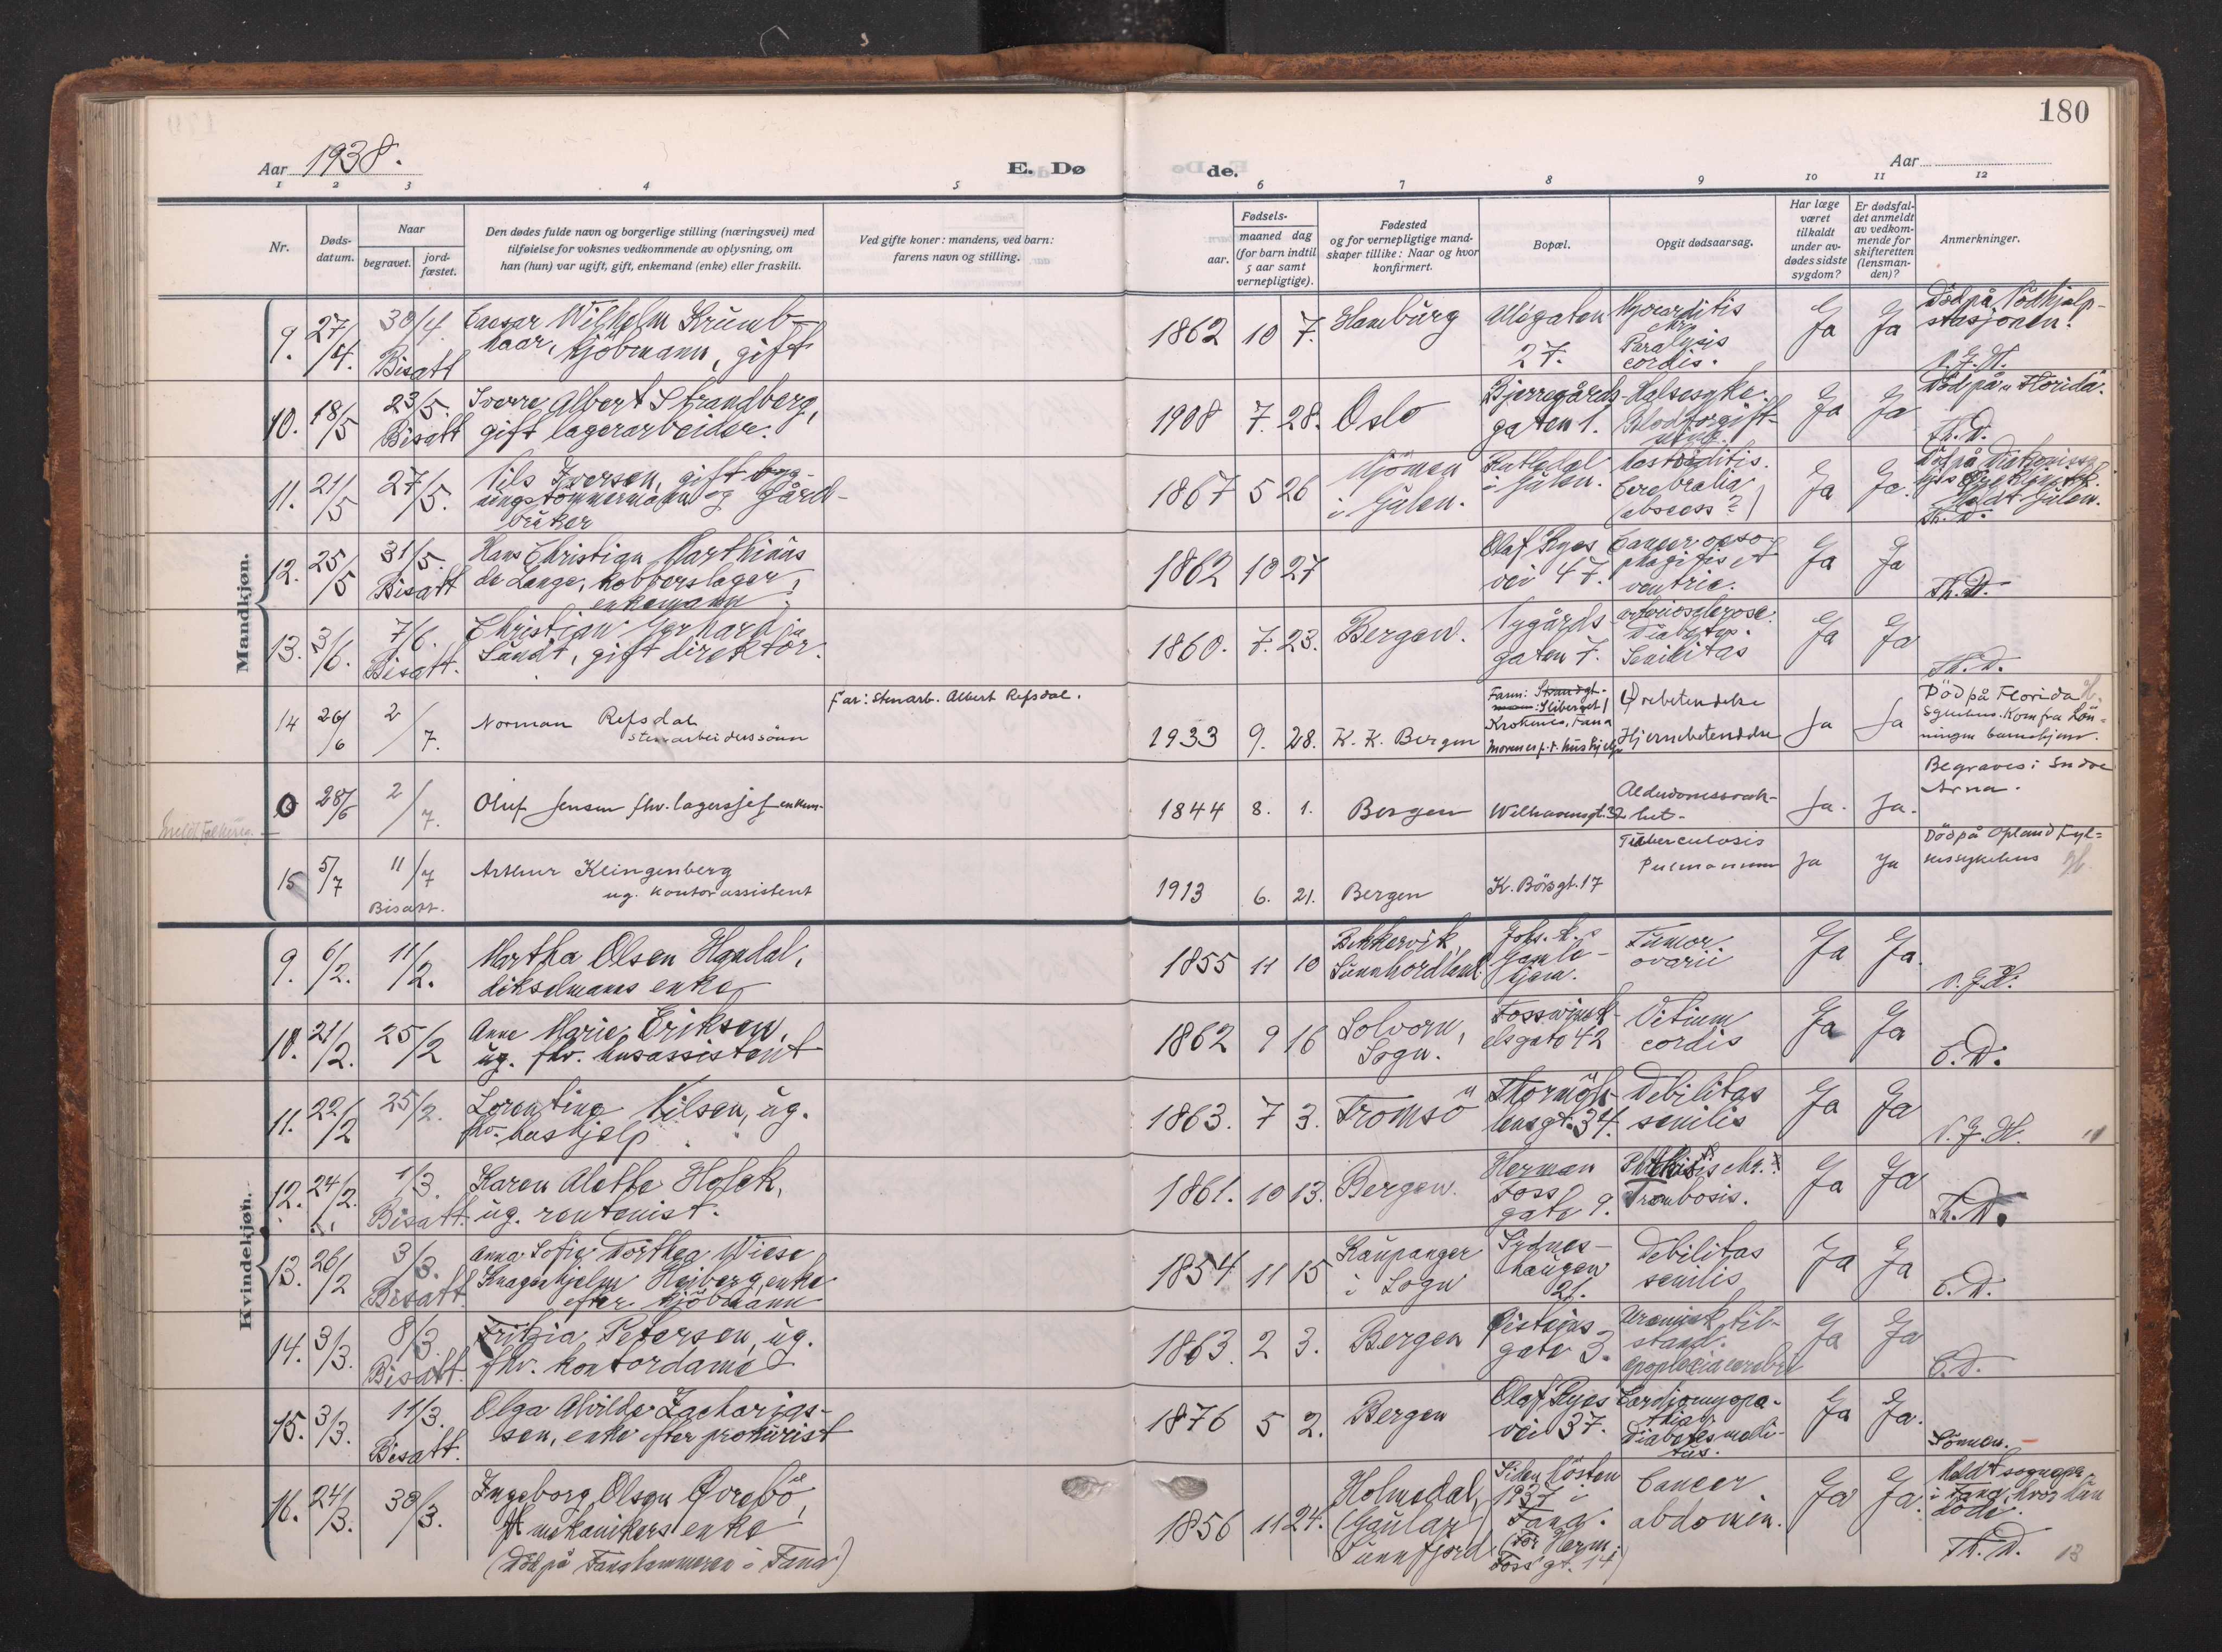 180
Aar 1938.
E. Dø
de.
Aar
1 2 3 4 5 6 7 8 9 10 11 12
Nr.
Døds-
datum.
Naar
begravet.
jord-
fæstet.
Den dødes fulde navn og borgerlige stilling (næringsvei) med
tilføielse for voksnes vedkommende av oplysning, om
han (hun) var ugift, gift, enkemand (enke) eller fraskilt.
Ved gifte koner: mandens, ved barn:
farens navn og stilling.
Fødsels-
aar.
maaned dag
(for barn indtil
5 aar samt
vernepligtige).
Fødested
og for vernepligtige mand-
skaper tillike: Naar og hvor
konfirmert.
Bopæl.
Opgit dødsaarsag.
Har læge
været
tilkaldt
under av-
dødes sidste
sygdom?
Er dødsfal-
det anmeldt
av vedkom-
mende for
skifteretten
(lensman-
den)?
Anmerkninger.
Mandkjøn.
9. 27/4. 30/4 Bisatt
Caesar Wilhelm Krumb-
haar, kjöbmann, gift
1862 10 7. Hamburg
Allégaten
27.
Myocarditis
chr.
Paralysis
cordis.
Ja Ja
Död på Nödhjelp-
stasjonen.
10. 18/5 23/5. Bisatt
Sverre Albert Strandberg,
gift lagerarbeider.
1908 7. 28. Oslo
Bjerregårds-
gaten 1.
Halsesyke.
Blodforgift-
ning.
Ja Ja
Död på Florida.
Th. D.
11. 21/5 27/5.
Nils Iversen, gift byg-
ningstömmermann og gård-
bruker
1867 5 26
i Gulen.
Rutledal
i Gulen.
Mastoiditis.
Cerebralia
(abscess?)
Ja Ja.
Meldt Gulen.
Th. D.
12. 25/5 31/5. Bisatt
Hans Christian Marthinus
de Lange, kobberslager,
enkemann.
1862 10 27
Olaf Ryes
vei 47.
Cancer oeso-
phagi et
ventric.
Ja Ja
Th. D.
13. 3/6. 7/6. Bisatt.
Christian Gerhard
Sundt, gift direktör.
1860. 7. 23. Bergen.
Nygårds-
gaten 7.
Arteriosclerose.
Diabetes.
Senilitas
Ja Ja
Th. D.
14 26/6 2/7.
Norman Refsdal
stenarbeiderssönn
Far: Stenarb. Albert Refsdal.
1933 9. 28. K. K. Bergen
Krokenes, Fana
Ørebetendelse
Hjernebetendelse
Ja Ja
Död på Florida
Sykehus. Kom fra Lön-
ningen barnehjem.
0 28/6 2/7.
Oluf Jensen fhv. lagersjef enkem.
1844 8. 1. Bergen
Welhavensgt. 32
Alderdomssvak-
het.
Ja. Ja.
Begraves i Indre
Arna.
15 5/7 11/7 Bisatt.
Arthur Klingenberg
ug. kontorassistent
1913 6. 21. Bergen
K. Börsgt. 17
Tuberculosis
Pulmonum
Ja Ja
Död på Opland Fyl-
kessykehus
Kvindekjøn.
9. 6/2. 11/2.
Martha Olsen Håndal,
enke
1855 11 10
Bekkervik,
Sunnhordland.
Gamle-
hjem.
Tumor
ovarii
Ja Ja.
10. 21/2. 25/2
Anne Marie Eriksen,
ug. fhv. husassistent
1862 9 16
Solvorn,
Sogn.
Fosswinck-
elsgate 42
Vitium
cordis
Ja Ja
C. D.
11. 22/2 25/2.
Lorentine Nilsen, ug.
fhv. hushjelp.
1863. 7 3. Tromsö
Thormöh-
lensgt. 34.
Debilitas
senilis
Ja Ja
12. 24/2. 1/3. Bisatt.
Karen Alette Holck,
ug. rentenist.
1861. 10 13. Bergen.
Herman
Foss
gate 9.
Trombosis.
Ja Ja
Th. D.
13. 26/2 3/3. Bisatt
Anna Sofie Dorthea Wiese
Knagenhjelm Heiberg, enke
efter kjöbmann
1854 11 15
Kaupanger
i Sogn
Sydnes-
haugen
21.
Debilitas
senilis
Ja Ja
C. D.
14. 3/3. 8/3. Bisatt.
Fritzia Petersen, ug.
fhv. kontordame
1863. 2 3. Bergen
gate 3.
Uremisk til-
stand.
Apoplexia cerebri
Ja Ja
C. D.
15. 3/3. 11/3. Bisatt.
Olga Alvilde Zacharias-
sen, enke efter prokurist
1876 5 2. Bergen
Olaf Ryes
vei 37.
Cardiomyopa-
thia
Diabetes melli-
tus.
Ja Ja.
16. 24/3. 30/3.
Ingeborg Olsen Övrebö,
mekanikers enke
(Död på Fanahammeren i Fana)
1856 11 24.
Holmedal,
(Gaular)
Sunnfjord.
Siden hösten
1937 i
Fana.
(För Herm.
Foss' gt. 14)
Cancer
abdomin.
Ja Ja.
Meldt sogнepr.
i Fana, hvor hun
döde.
Th. D.
13